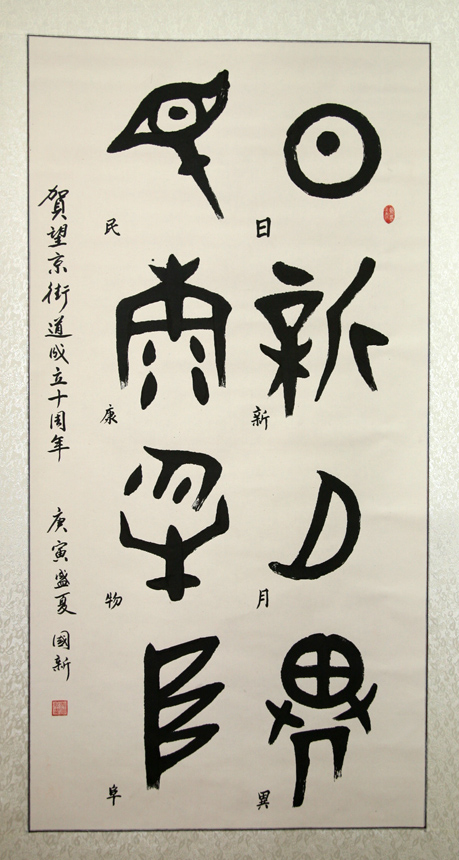 日新月異
民康物阜
日新月異
民康物阜
賀望京街道成立十周年
庚寅盛夏 國新